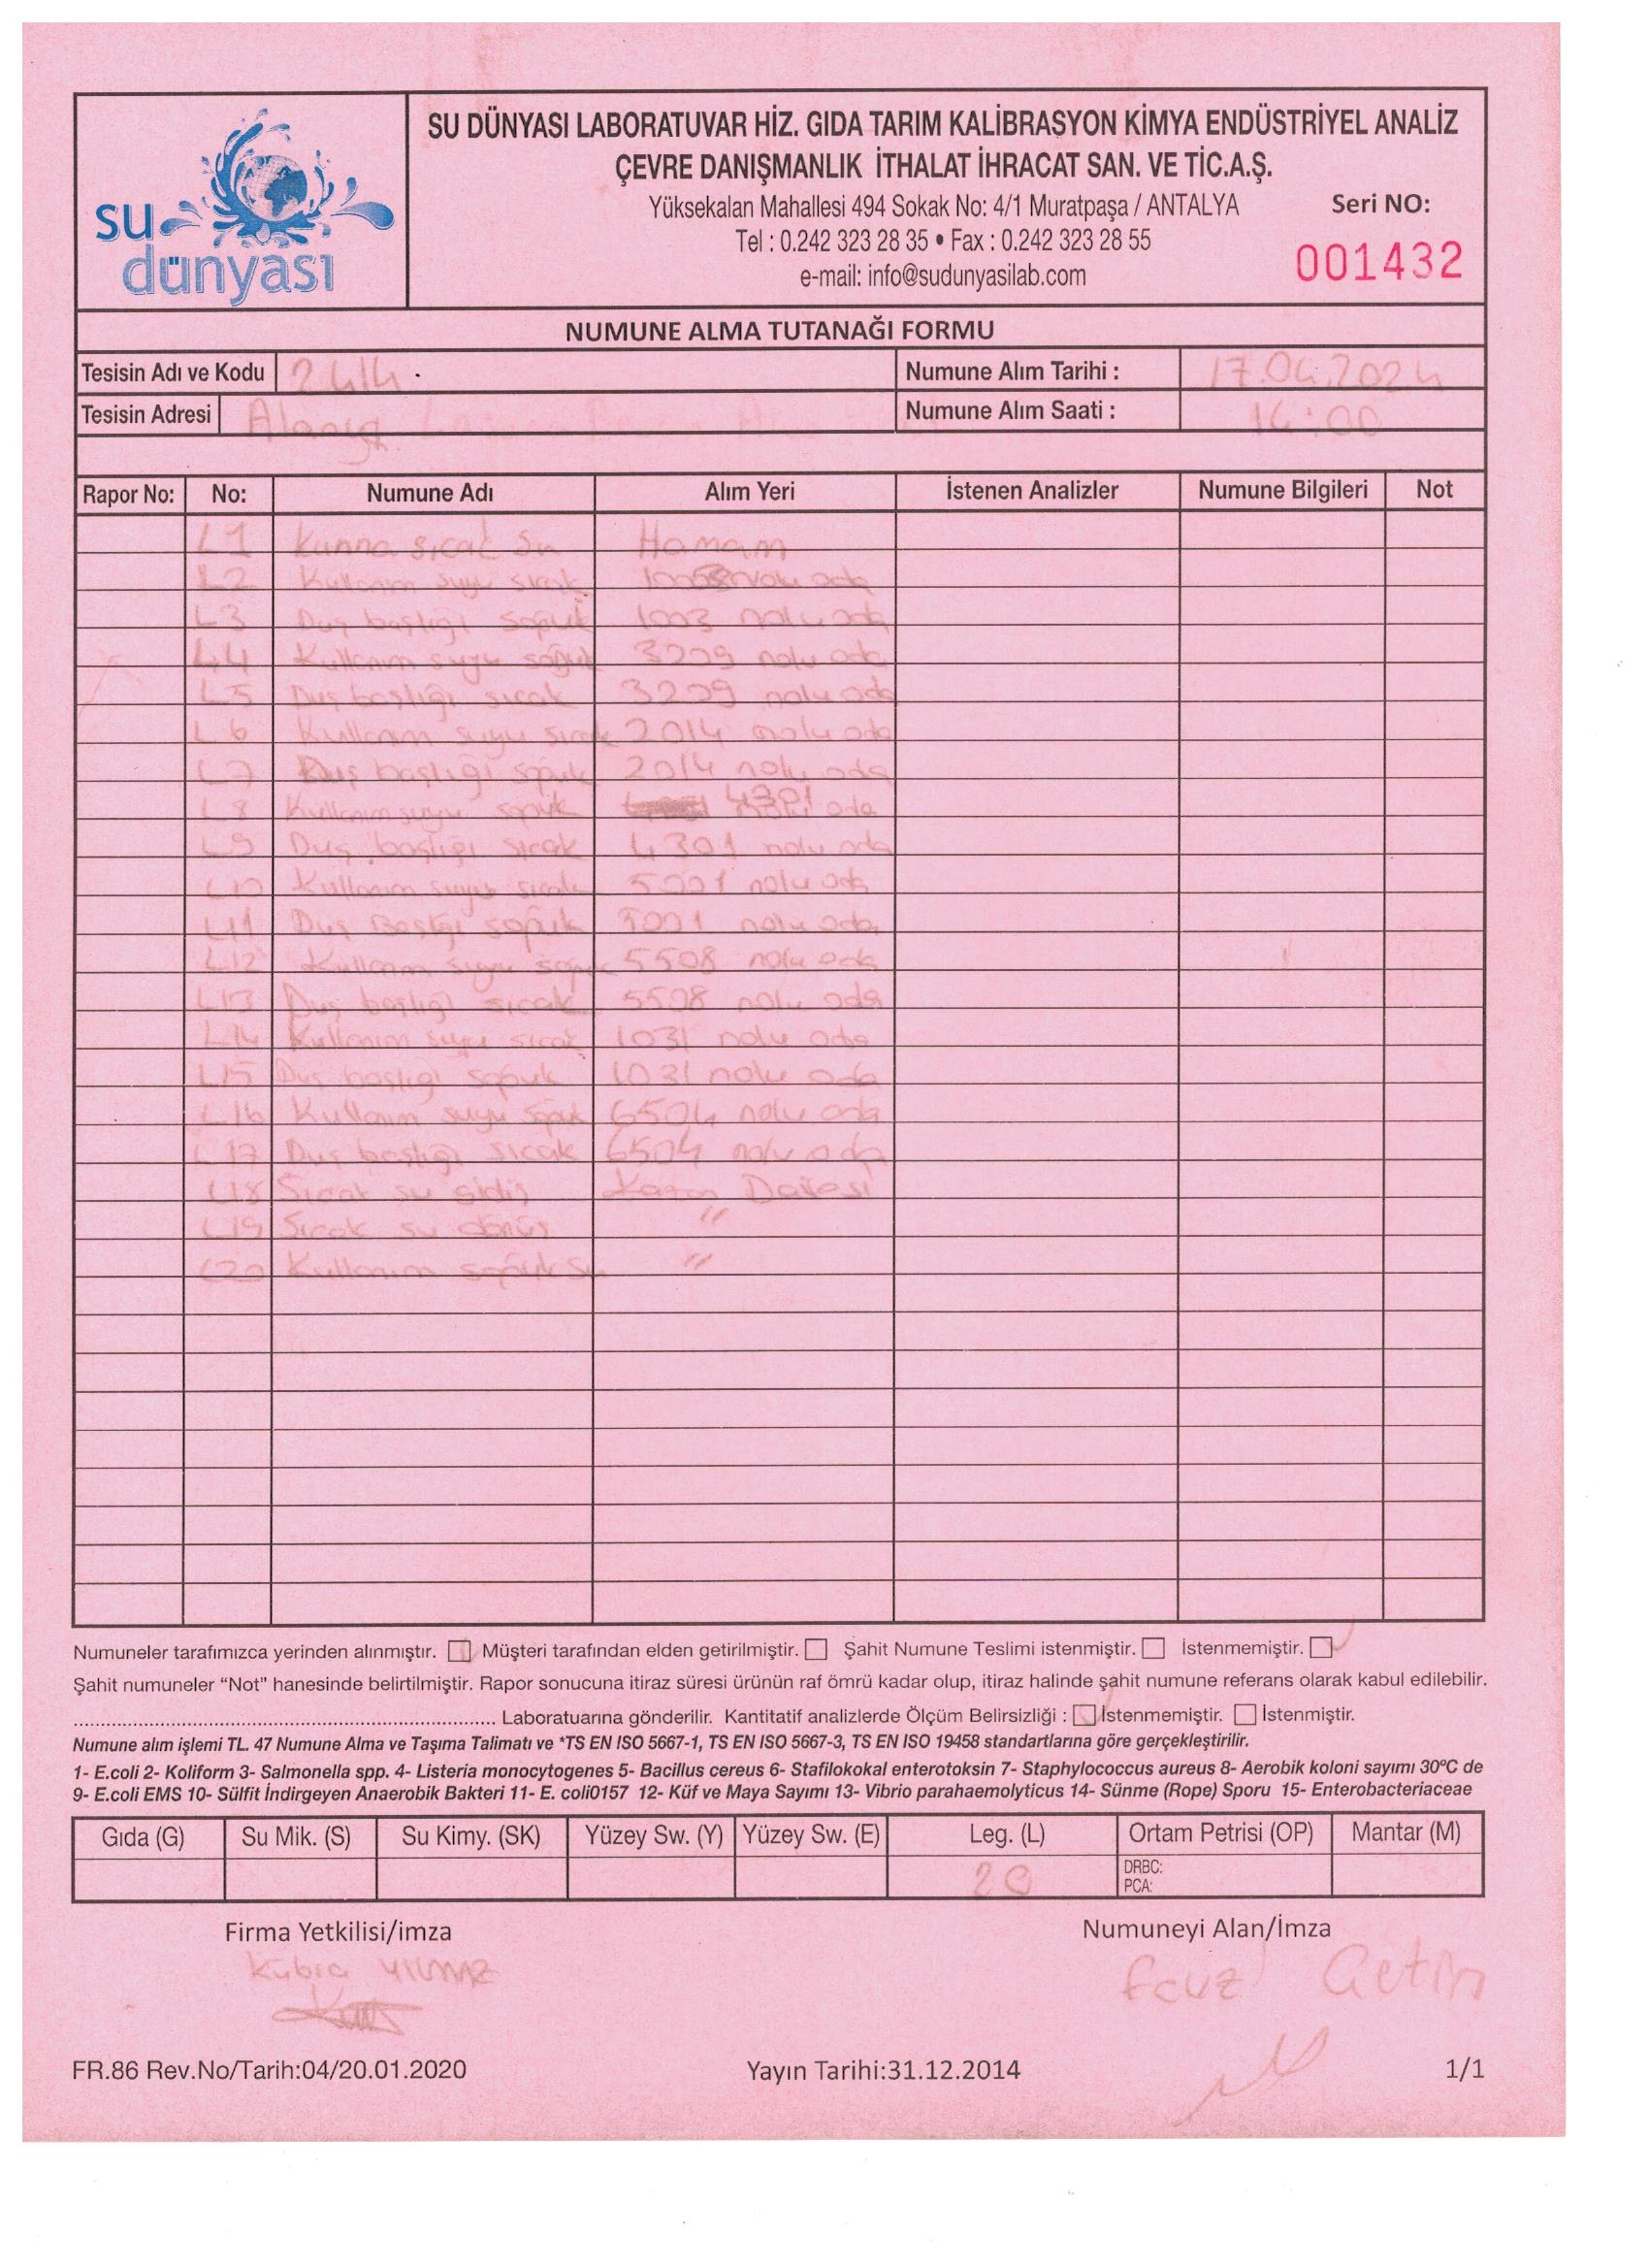 su
dünyası
SU DÜNYASI LABORATUVAR HİZ. GIDA TARIM KALİBRASYON KİMYA ENDÜSTRİYEL ANALİZ
ÇEVRE DANIŞMANLIK İTHALAT İHRACAT SAN. VE TİC.A.Ş.
Yüksekalan Mahallesi 494 Sokak No: 4/1 Muratpaşa / ANTALYA
Seri NO:
Tel : 0.242 323 28 35 • Fax : 0.242 323 28 55
001432
e-mail: info@sudunyasilab.com
NUMUNE ALMA TUTANAĞI FORMU
Tesisin Adı ve Kodu 2414 Numune Alım Tarihi : 17.04.2024
Tesisin Adresi Alanya Numune Alım Saati : 14:00
Rapor No: No: Numune Adı Alım Yeri İstenen Analizler Numune Bilgileri Not
L1 Kurna sıcak su Hamam
L2 Kullanım suyu sıcak nolu oda
L3 Duş başlığı soğuk 1003 nolu oda
L4 Kullanım suyu soğuk 3209 nolu oda
L5 Duş başlığı sıcak 3209 nolu oda
L6 Kullanım suyu sıcak 2014 nolu oda
L7 Duş başlığı soğuk 2014 nolu oda
L8 Kullanım suyu soğuk 4301 nolu oda
L9 Duş başlığı sıcak 4301 nolu oda
L10 Kullanım suyu sıcak 5001 nolu oda
L11 Duş Başlığı soğuk 5001 nolu oda
L12 Kullanım suyu soğuk 5508 nolu oda
L13 Duş başlığı sıcak 5508 nolu oda
L14 Kullanım suyu sıcak 1031 nolu oda
L15 Duş başlığı soğuk 1031 nolu oda
L16 Kullanım suyu soğuk 6504 nolu oda
L17 Duş başlığı sıcak 6504 nolu oda
L18 Sıcak su gidiş Kazan Dairesi
L19 Sıcak su dönüş "
L20 Kullanım soğuk su "
Numuneler tarafımızca yerinden alınmıştır. Müşteri tarafından elden getirilmiştir. Şahit Numune Teslimi istenmiştir. İstenmemiştir.
Şahit numuneler “Not” hanesinde belirtilmiştir. Rapor sonucuna itiraz süresi ürünün raf ömrü kadar olup, itiraz halinde şahit numune referans olarak kabul edilebilir.
Laboratuarına gönderilir. Kantitatif analizlerde Ölçüm Belirsizliği : İstenmemiştir. İstenmiştir.
Numune alım işlemi TL. 47 Numune Alma ve Taşıma Talimatı ve *TS EN ISO 5667-1, TS EN ISO 5667-3, TS EN ISO 19458 standartlarına göre gerçekleştirilir.
1- E.coli 2- Koliform 3- Salmonella spp. 4- Listeria monocytogenes 5- Bacillus cereus 6- Stafilokokal enterotoksin 7- Staphylococcus aureus 8- Aerobik koloni sayımı 30ºC de
9- E.coli EMS 10- Sülfit İndirgeyen Anaerobik Bakteri 11- E. coli0157 12- Küf ve Maya Sayımı 13- Vibrio parahaemolyticus 14- Sünme (Rope) Sporu 15- Enterobacteriaceae
Gıda (G) Su Mik. (S) Su Kimy. (SK) Yüzey Sw. (Y) Yüzey Sw. (E) Leg. (L) Ortam Petrisi (OP) Mantar (M)
20 DRBC:
PCA:
Firma Yetkilisi/imza Numuneyi Alan/İmza
Kübra YILMAZ Çetin
FR.86 Rev.No/Tarih:04/20.01.2020 Yayın Tarihi:31.12.2014 1/1